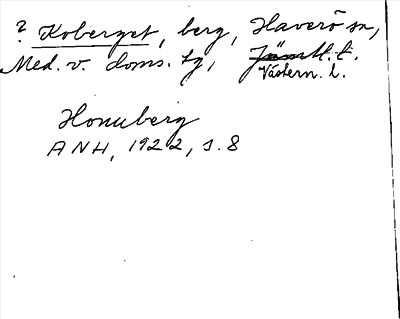 ? Koberget, berg, Haverö sn,
Med. v. doms. tg, Jämtl. l.
Västern. l.
Honuberg
ANH, 1922, s. 8